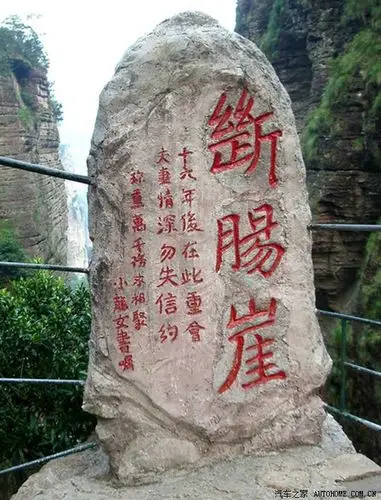 斷腸崖
十六年後在此重會
夫妻情深勿失信約
珍重萬千務求相聚
小龍女書囑
©汽车之家
AUTOHOME.COM.CN